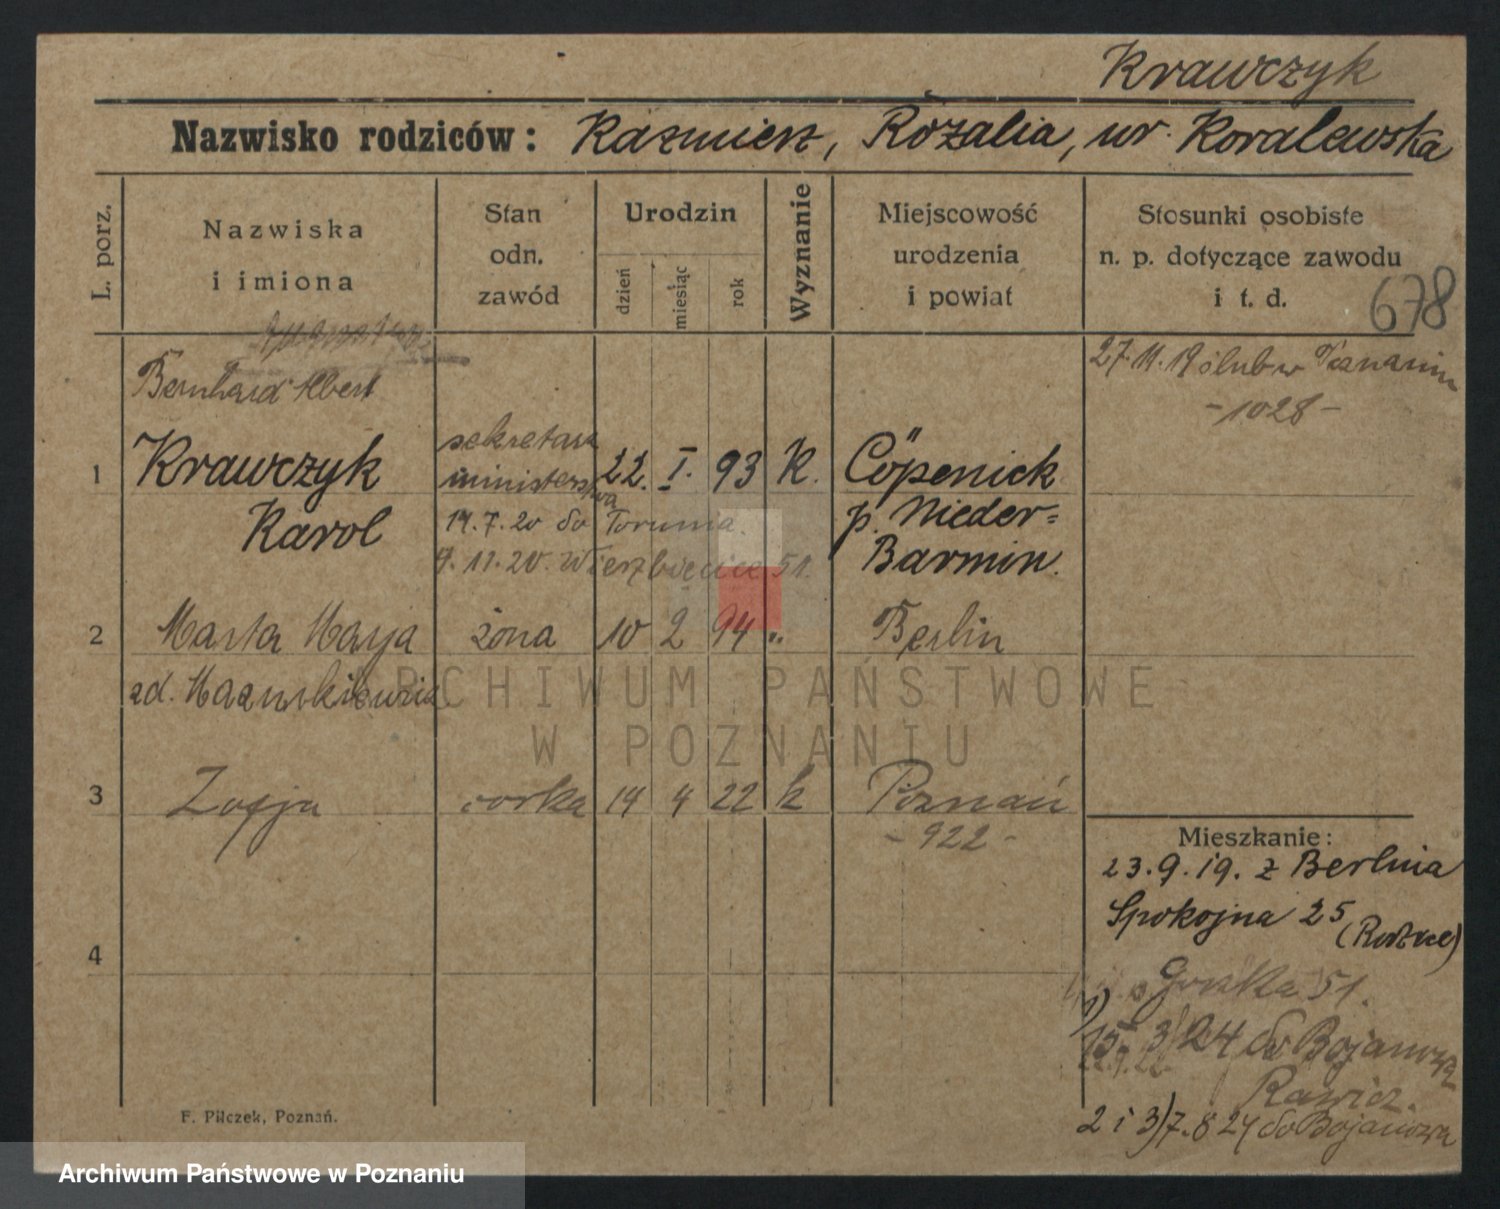 Krawczyk
Nazwisko rodziców: Kaźmierz, Rozalia, ur. Koralewska
L. porz.
Nazwiska
i imiona
Stan
odn.
zawód
Urodzin
dzień
miesiąc
rok
Wyznanie
Miejscowość
urodzenia
i powiat
Stosunki osobiste
n. p. dotyczące zawodu
i t. d.
678
27.11.19 ślub w Poznaniu
-1028-
Bernhard Albert
1 Krawczyk sekretarz 22. I. 93 K. Cöpenick
ministerstwa
Karol 14.7.20 do Torunia. p. Nieder-
9.11.20. Wierzbięcice 51. Barmin.
2 Marta Marja żona 10 2 94 " Berlin
zd. Mazurkiewicz
3 Zofja córka 14 4 22 k Poznań
-922-
4
Mieszkanie:
23.9.19. z Berlina
Spokojna 25
51.
1)
15. 3/24 do Bojanowa
Rawicz.
2 i 3) 7.8 24 do Bojanowa
F. Pilczek, Poznań.
ARCHIWUM PAŃSTWOWE
W POZNANIU
Archiwum Państwowe w Poznaniu